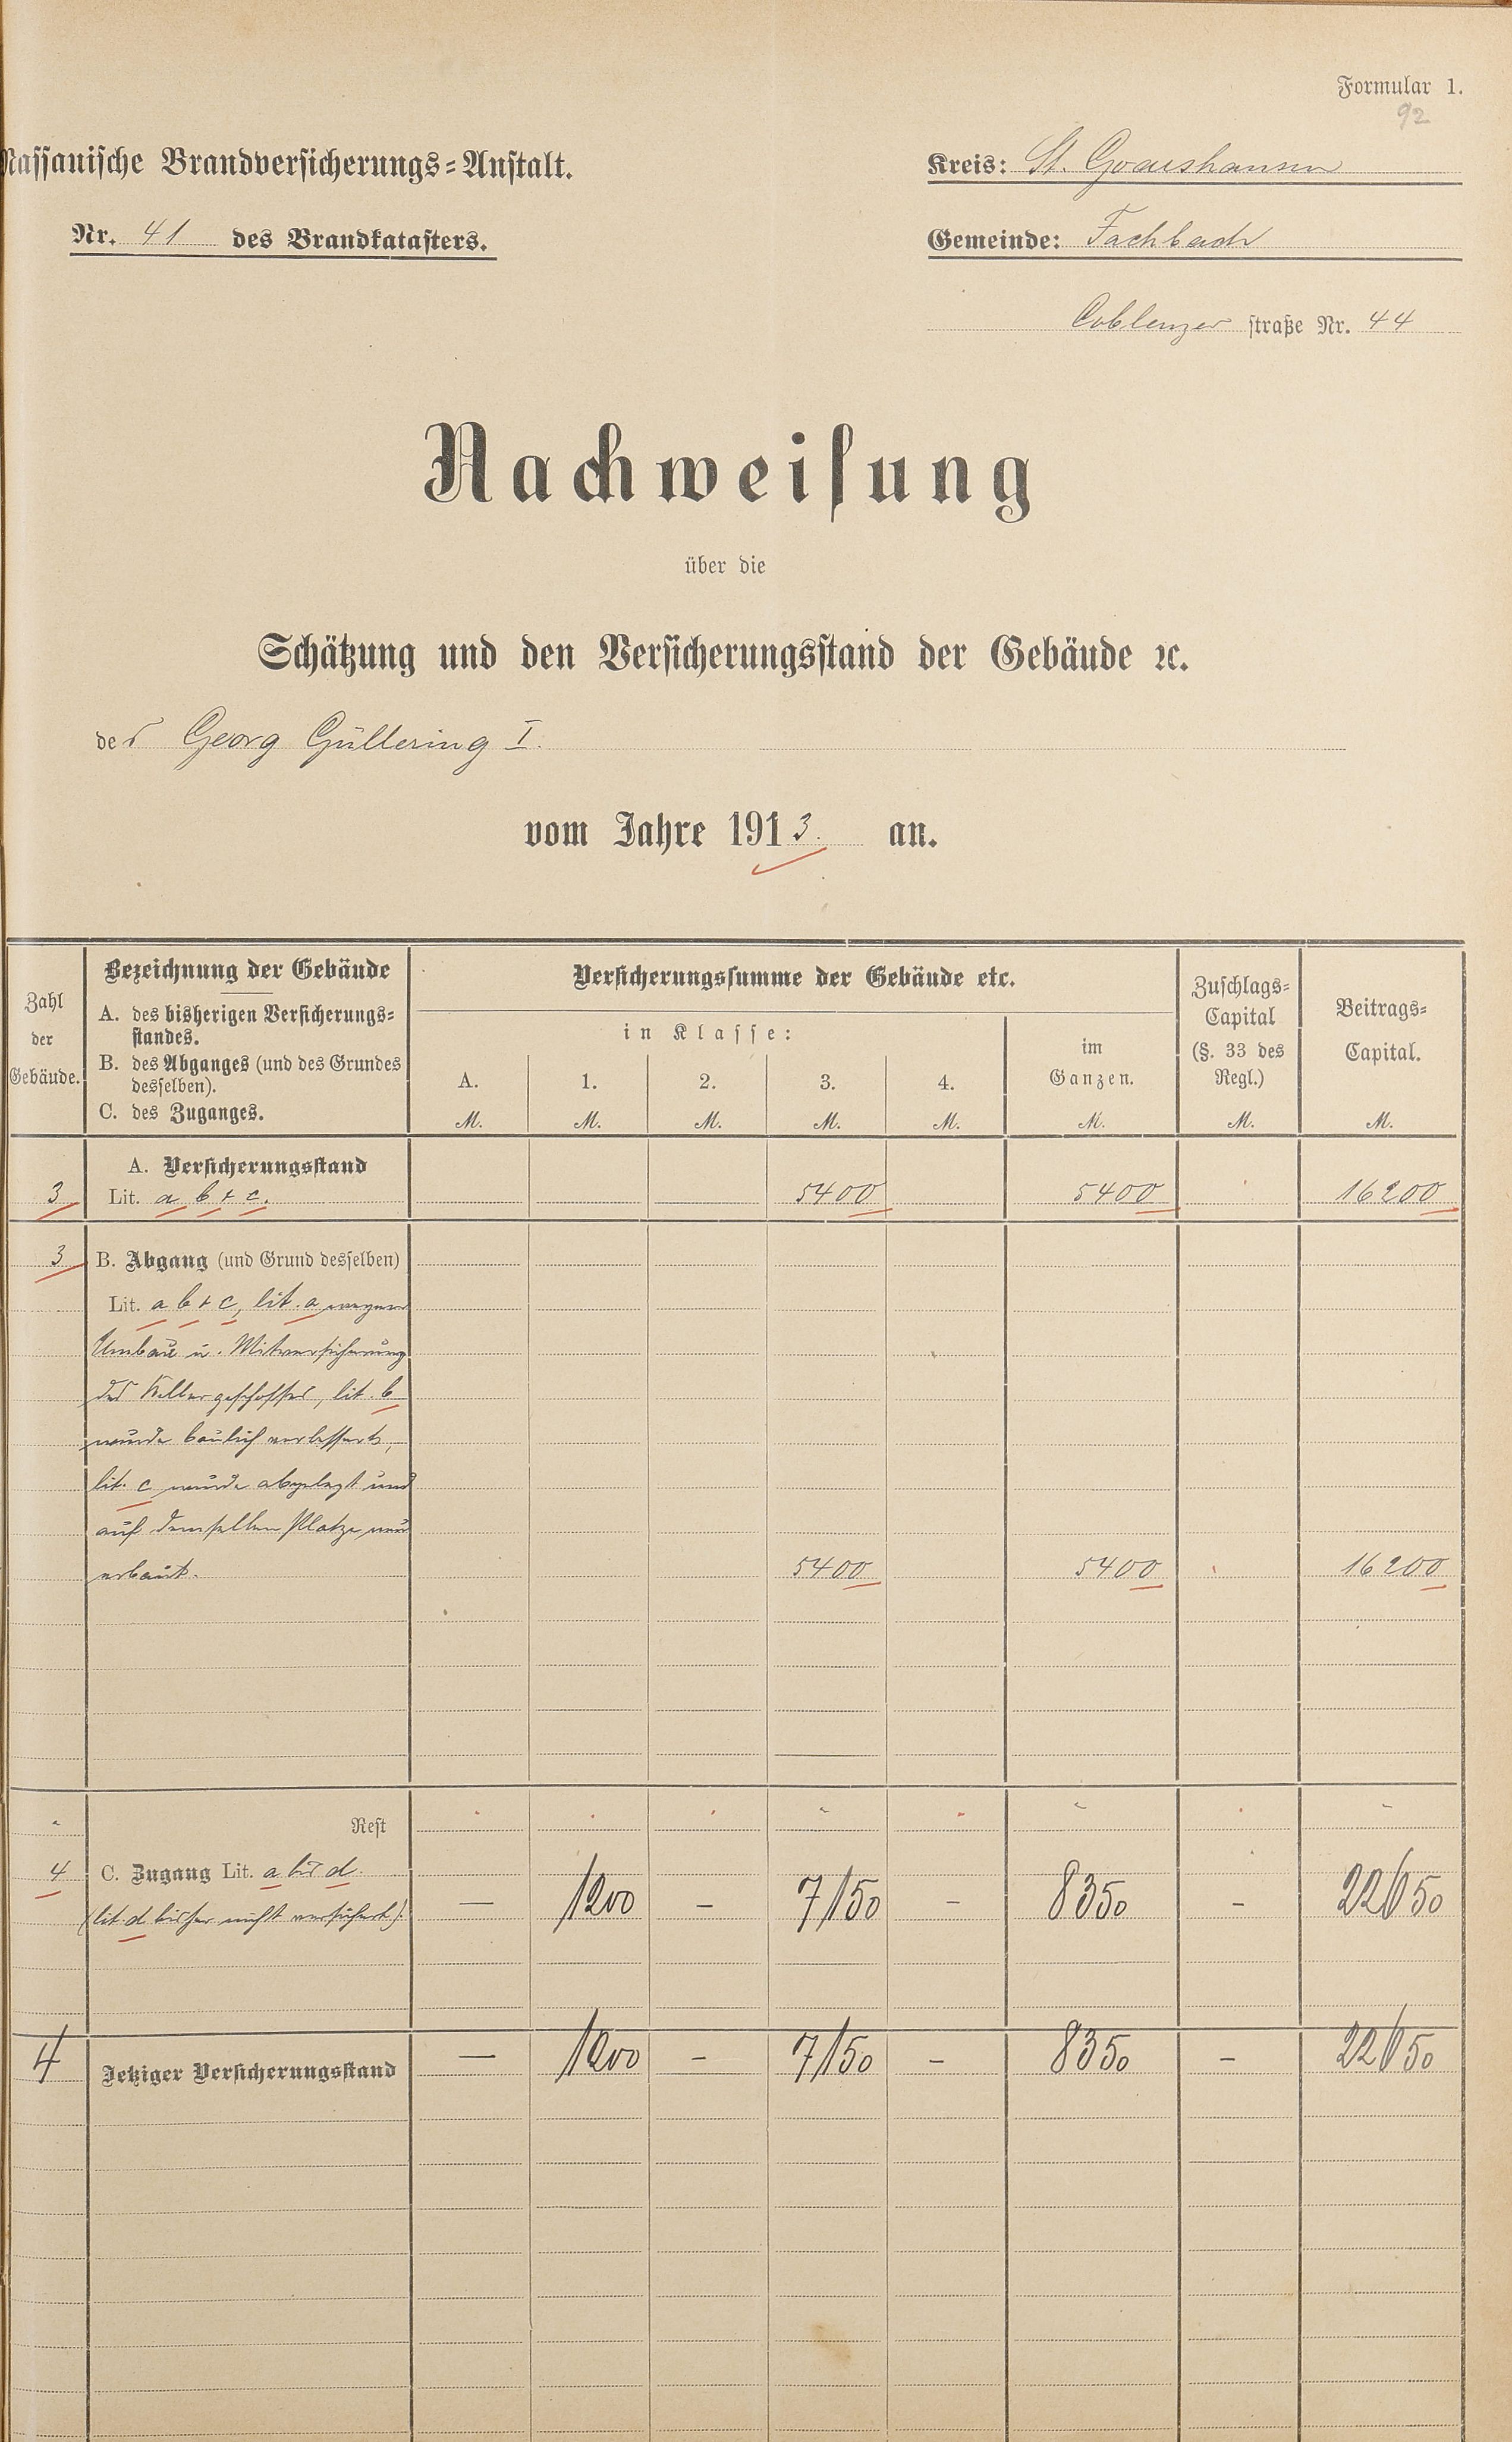 Formular 1.
92
Nassauische Brandversicherungs-Anstalt.
Kreis: St. Goarshausen
Nr. 41 des Brandkatasters.
Gemeinde: Fachbach
Coblenzer straße Nr. 44
Nachweisung
über die
Schätzung und den Versicherungsstand der Gebäude ꝛc.
des Georg Güllering I.
vom Jahre 1913. an.
Zahl der Gebäude.
Bezeichnung der Gebäude
A. des bisherigen Versicherungs-
standes.
B. des Abganges (und des Grundes
desselben).
C. des Zuganges.
Versicherungssumme der Gebäude etc.
in Klasse:
A. 1. 2. 3. 4.
im Ganzen.
Zuschlags-
Capital
(§. 33 des
Regl.)
Beitrags-
Capital.
M. M. M. M. M. M. M. M.
A. Versicherungsstand
3 Lit. a b + c. 5400 5400 16200
3 B. Abgang (und Grund desselben)
Lit. a b + c, lit. a wegen
Umbau u. Mitversicherung
des Kellergeschosses, lit. b
wurde baulich verbessert,
lit. c wurde abgelegt und
auf demselben Platze neu
erbaut. 5400 5400 16200
Rest
4 C. Zugang Lit. a bis d.
(lit. d bisher nicht versichert). — 1200 – 7150 – 8350 – 22650
4 Jetziger Versicherungsstand — 1200 – 7150 – 8350 – 22650